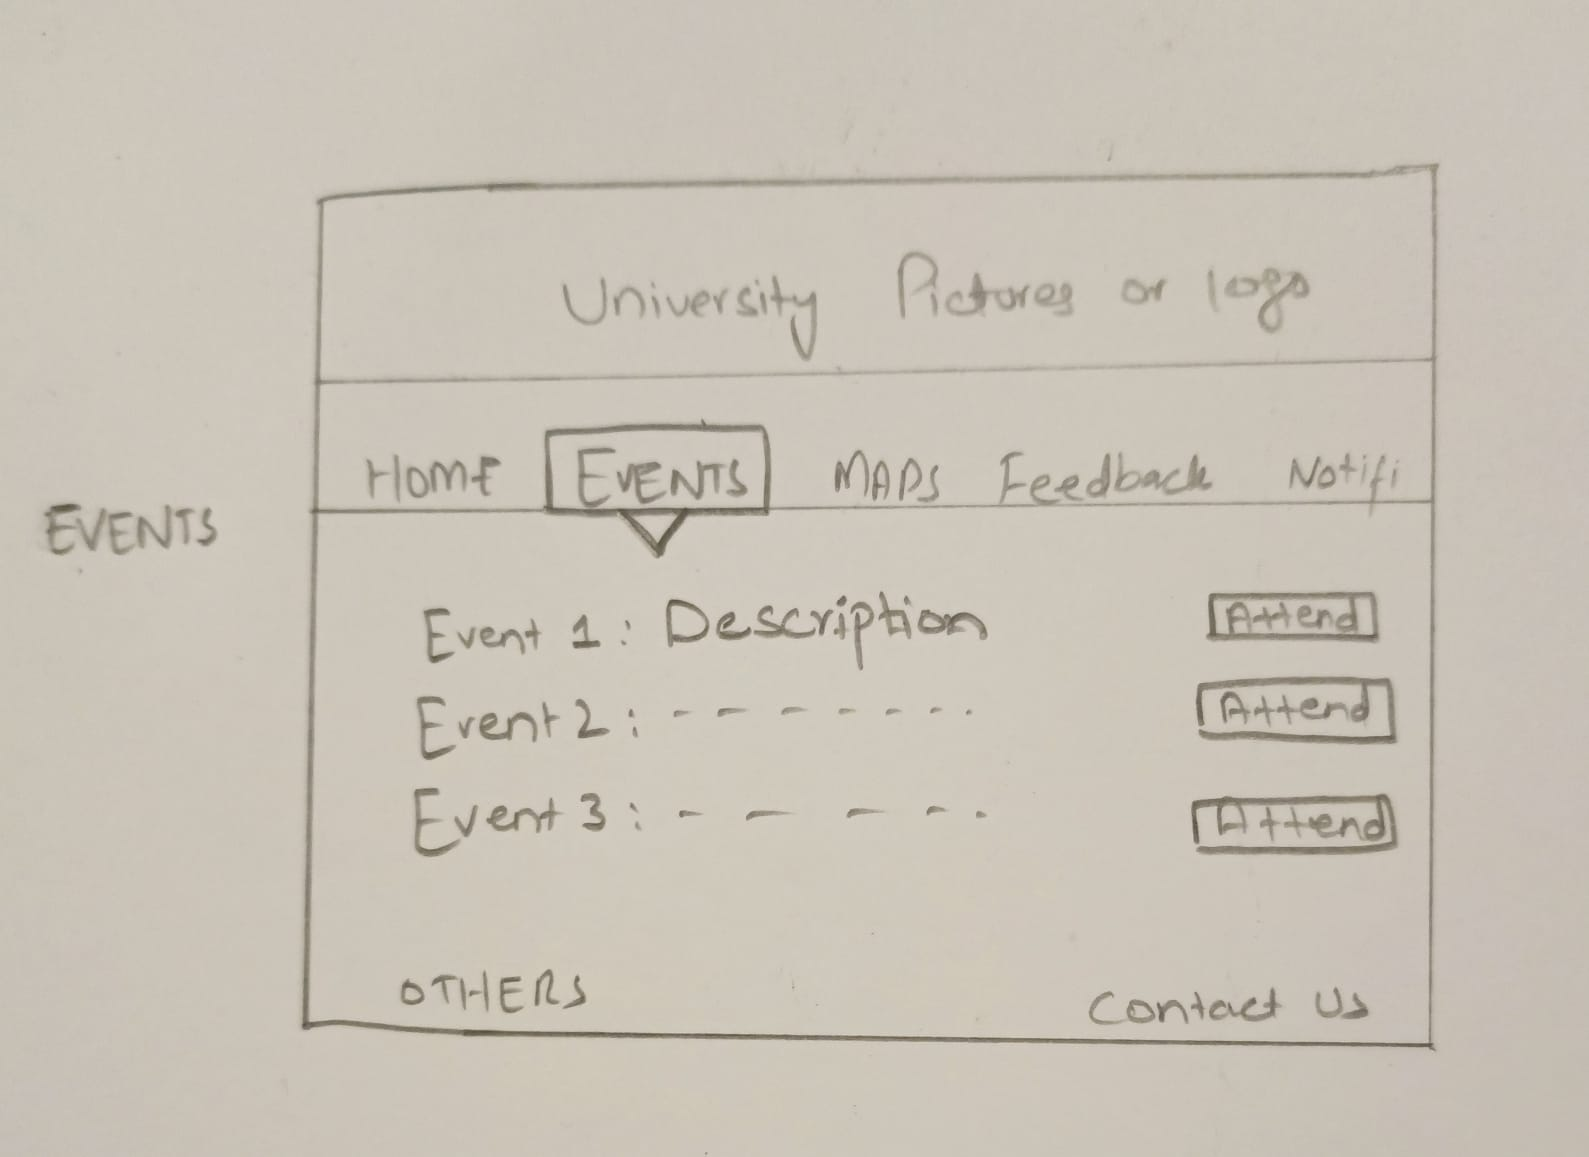 University Pictures or logo
Home EVENTS MAPS Feedback Notifi
EVENTS
Event 1: Description Attend
Event 2: - - - - - - - . Attend
Event 3: - - - - . Attend
OTHERS Contact Us